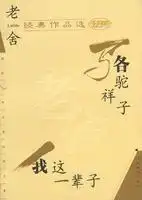 老舍
经典作品选
骆驼祥子
我这一辈子